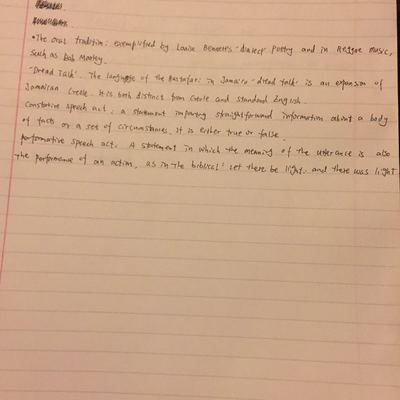 • The oral tradition: exemplified by Louise Bennett's 'dialect' Poetry and in Reggae music,
such as Bob Marley.
- 'Dread Talk'. The language of the Rastafari in Jamaica 'dread talk' is an expansion of
Jamaican Creole. It is both distinct from Creole and standard English.
Constative speech act: a statement imparting straightforward information about a body
of facts or a set of circumstances. It is either true or false.
performative speech act. A statement in which the meaning of the utterance is also
the performance of an action, as in the biblical 'Let there be light, and there was light